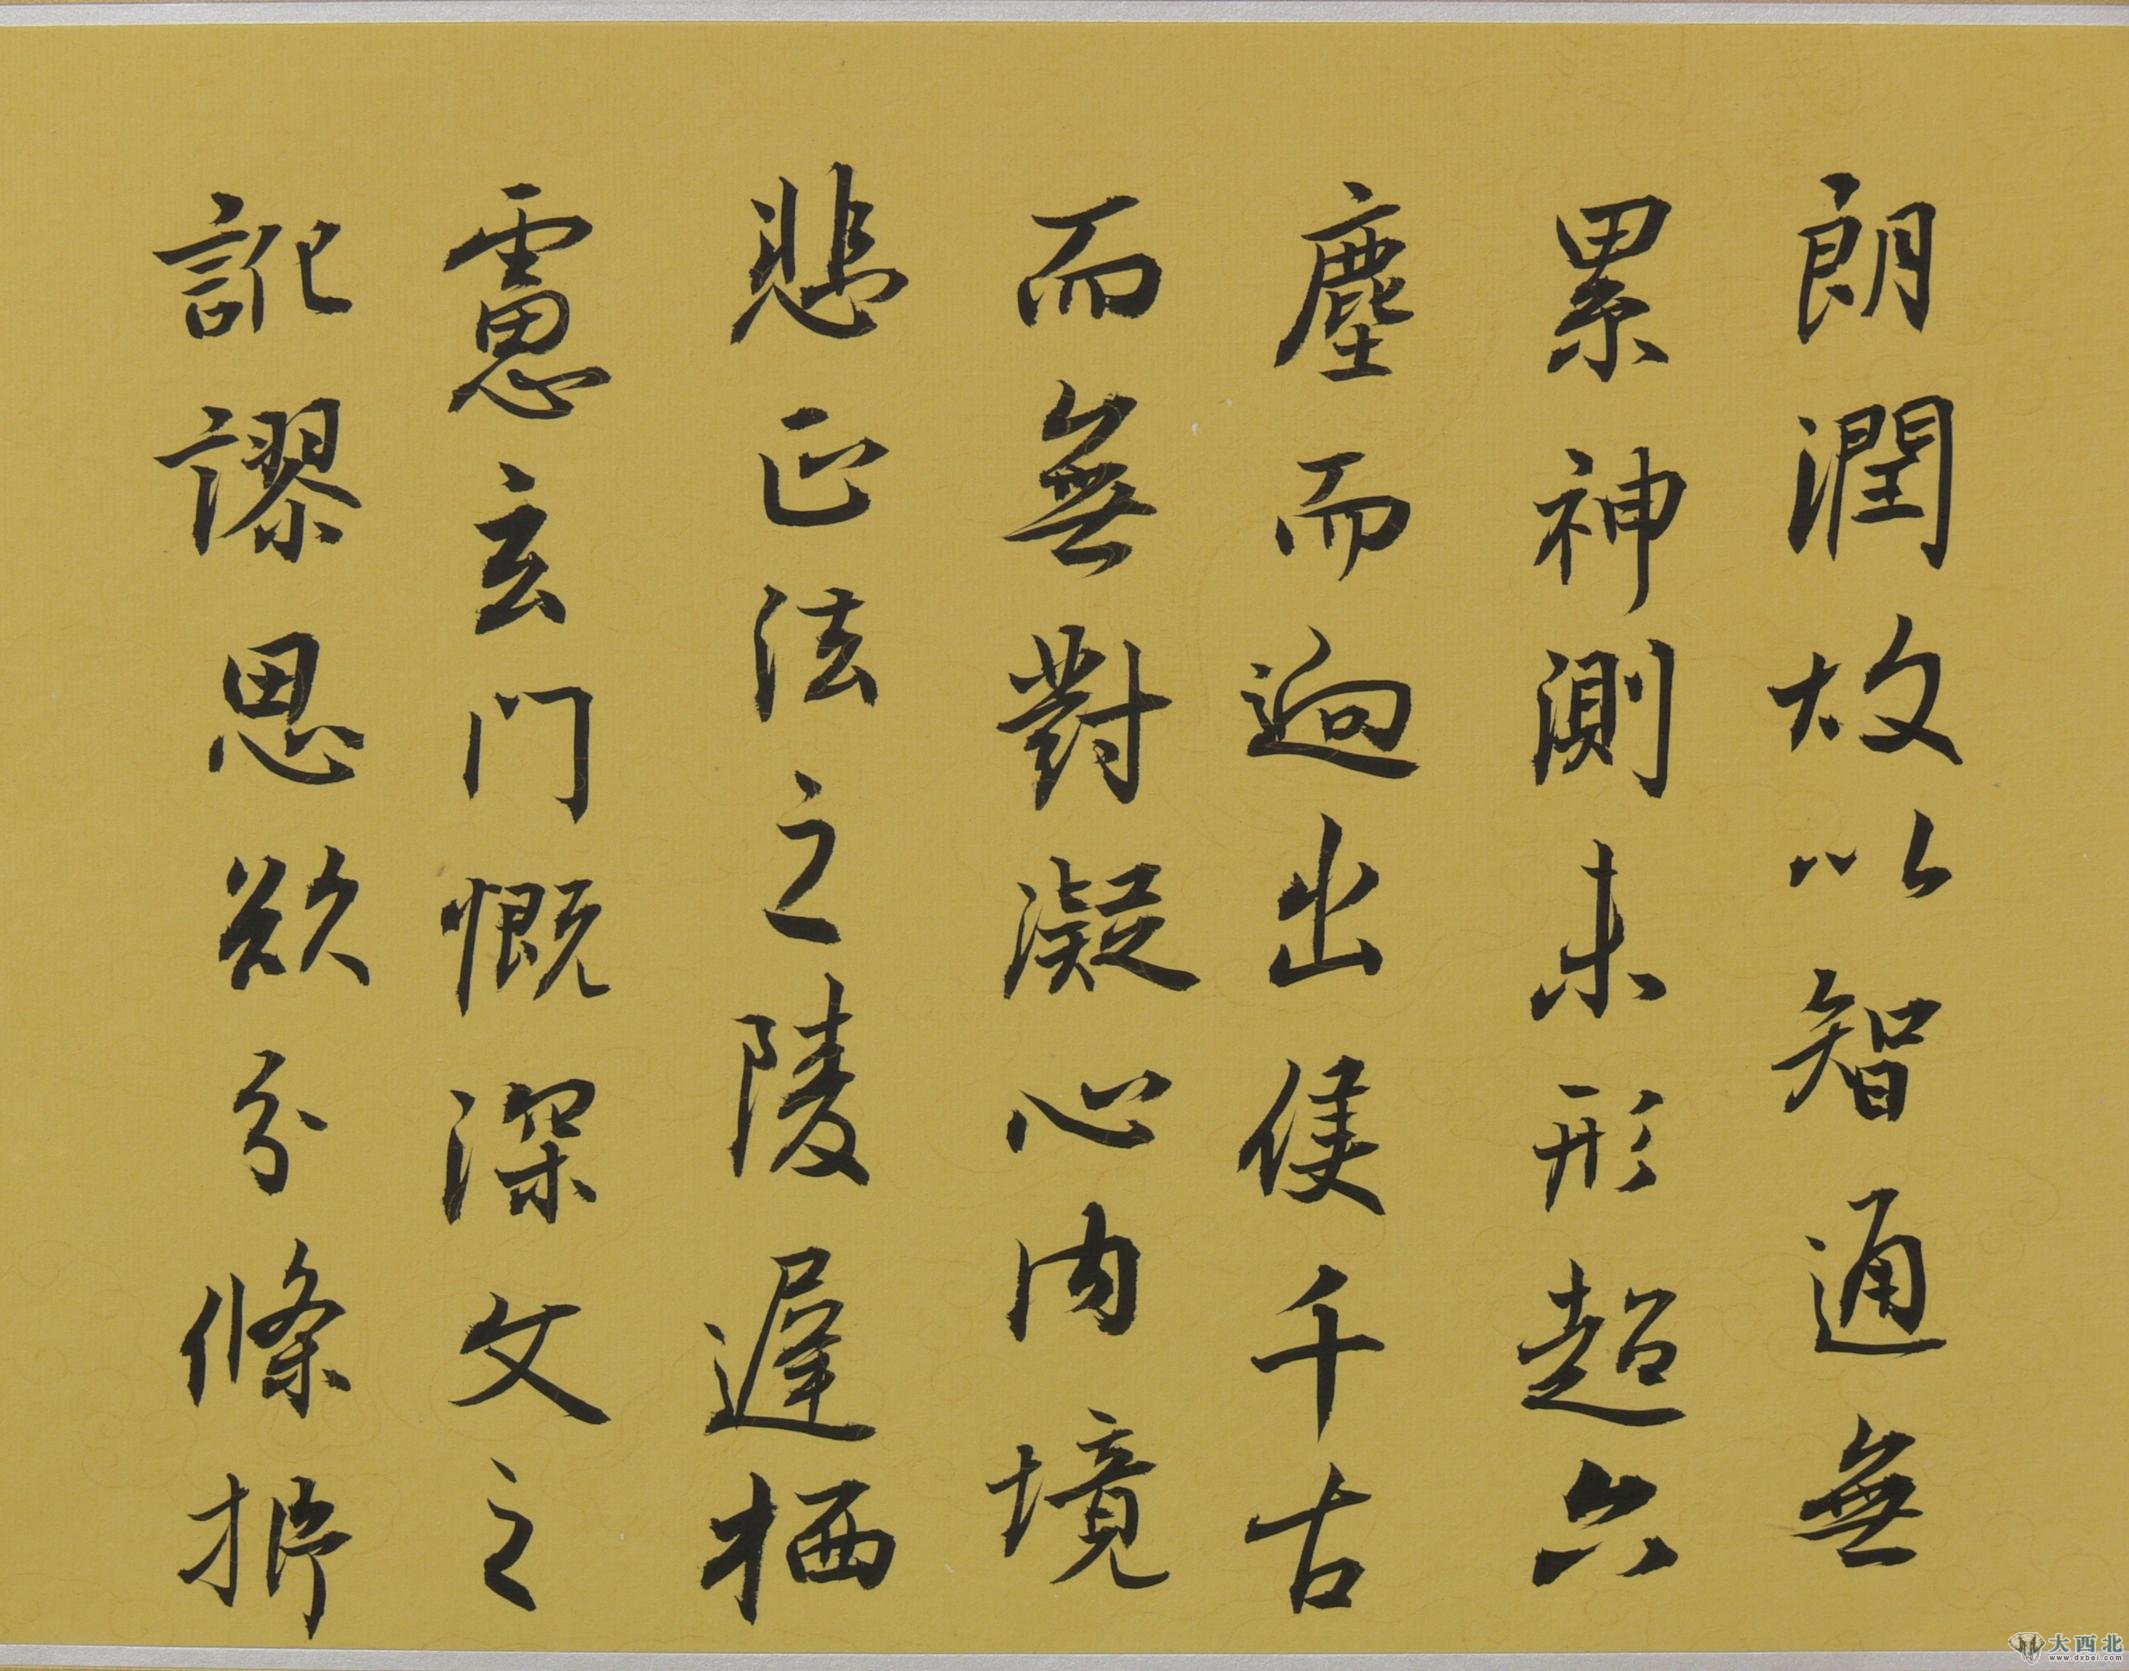 朗潤故以智通無
累神測未形超六
塵而迥出隻千古
而無對凝心內境
悲正法之陵遲栖
慮玄門慨深文之
訛謬思欲分條折
大西北
www.dxbei.com